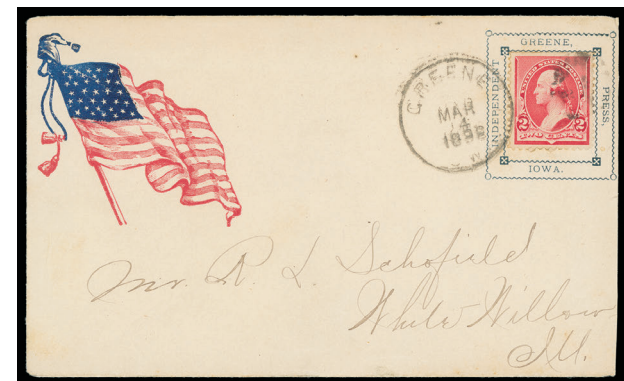 GREENE,
INDEPENDENT
PRESS.
IOWA.
UNITED STATES POSTAGE
2 2
TWO CENTS
GREENE
MAR
Mr. R. L. Schofield
White Willow
Ill.